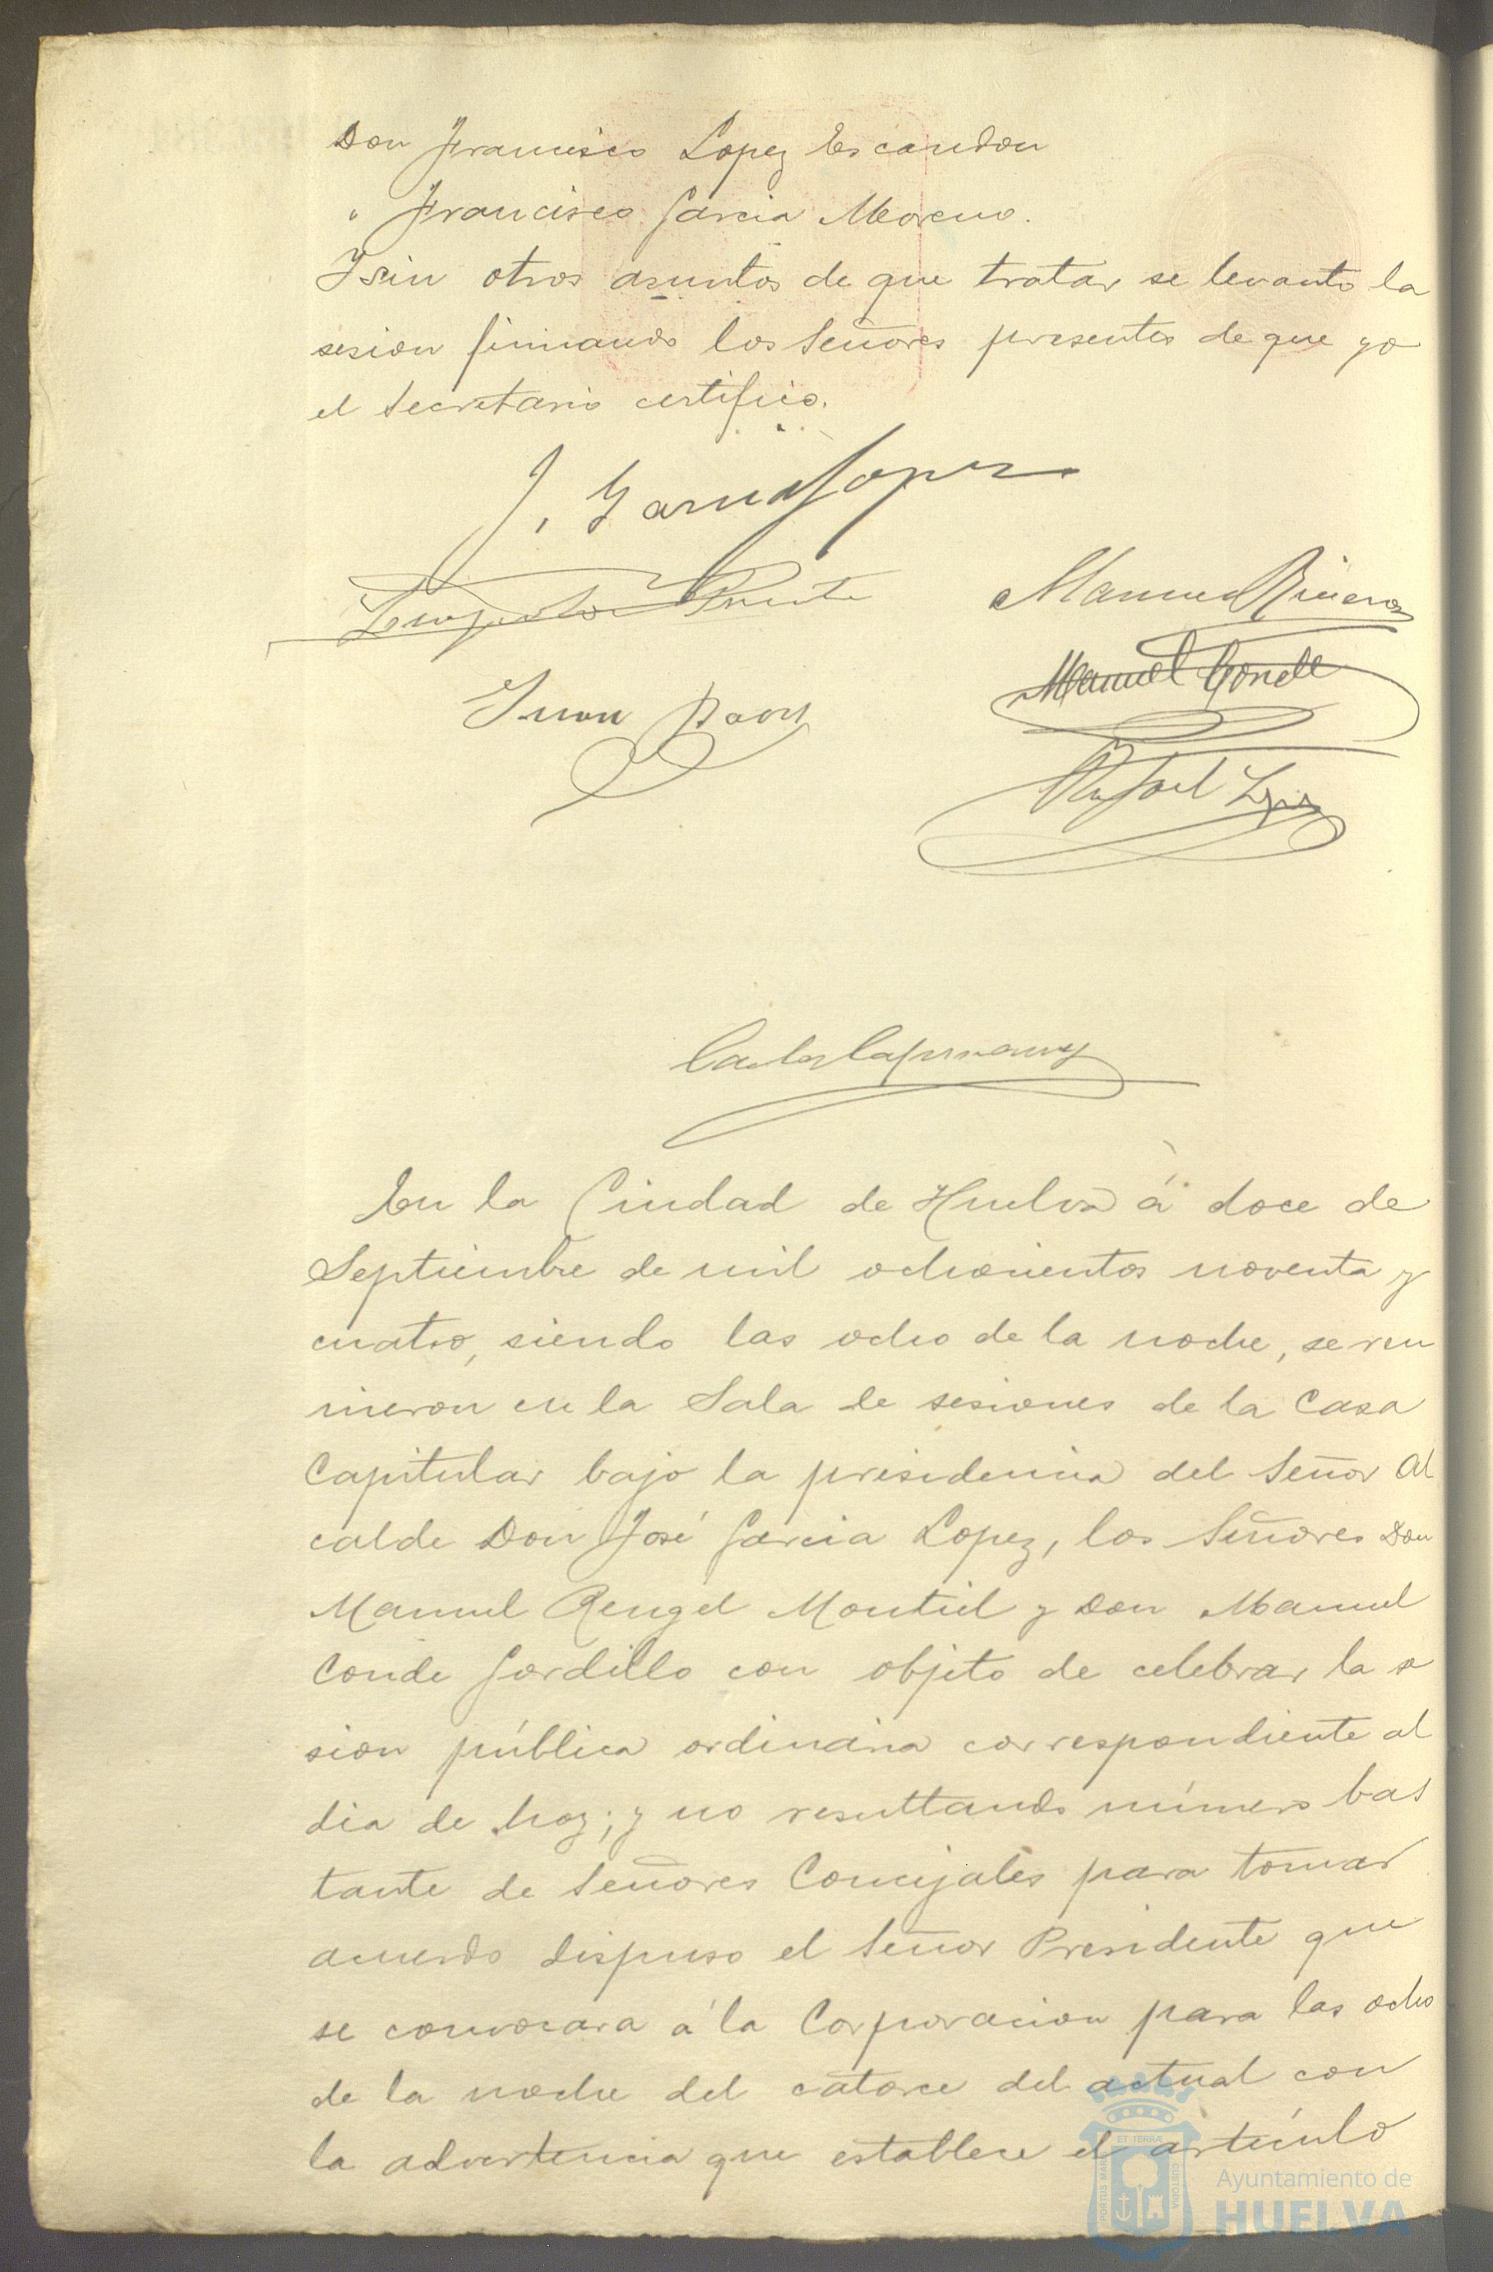 Don Francisco Lopez Escandon
" Francisco Garcia Moreno.
Y sin otros asuntos de que tratar se levanto la
sesion firmando los Señores presentes de que yo
el Secretario certifico.
J. Garcia Lopez
Manuel
Manuel Conde
Juan
Rafael Lopez
En la Ciudad de Huelva á doce de
Septiembre de mil ochocientos noventa y
cuatro, siendo las ocho de la noche, se reu
nieron en la Sala de sesiones de la Casa
Capitular bajo la presidencia del Señor Al
calde Don José Garcia Lopez, los Señores Don
Manuel Rengel Montiel y Don Manuel
Conde Gordillo con objeto de celebrar la se
sion pública ordinaria correspondiente al
dia de hoy; y no resultando número bas
tante de Señores Concejales para tomar
acuerdo dispuso el Señor Presidente que
se convocara á la Corporacion para las ocho
de la noche del catorce del actual con
la advertencia que establece el artículo
PORTUS MARIS ET TERRAE CUSTODIA
Ayuntamiento de
HUELVA